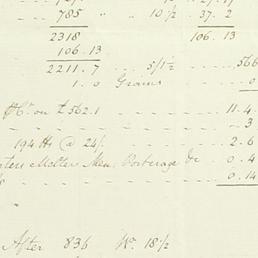 785 " " 10 1/2 .. 37. 2
2318 106. 13
106. 13
2211. 7 ... 5/1 1/2 ... 566
1. 0 Grains ... 0
on £562.1 11. 4.
3
194 lbs @ 24/. 2. 6
Melter Men, Porterage &c 0. 4
0. 14
After 836 Wt. 18 1/2